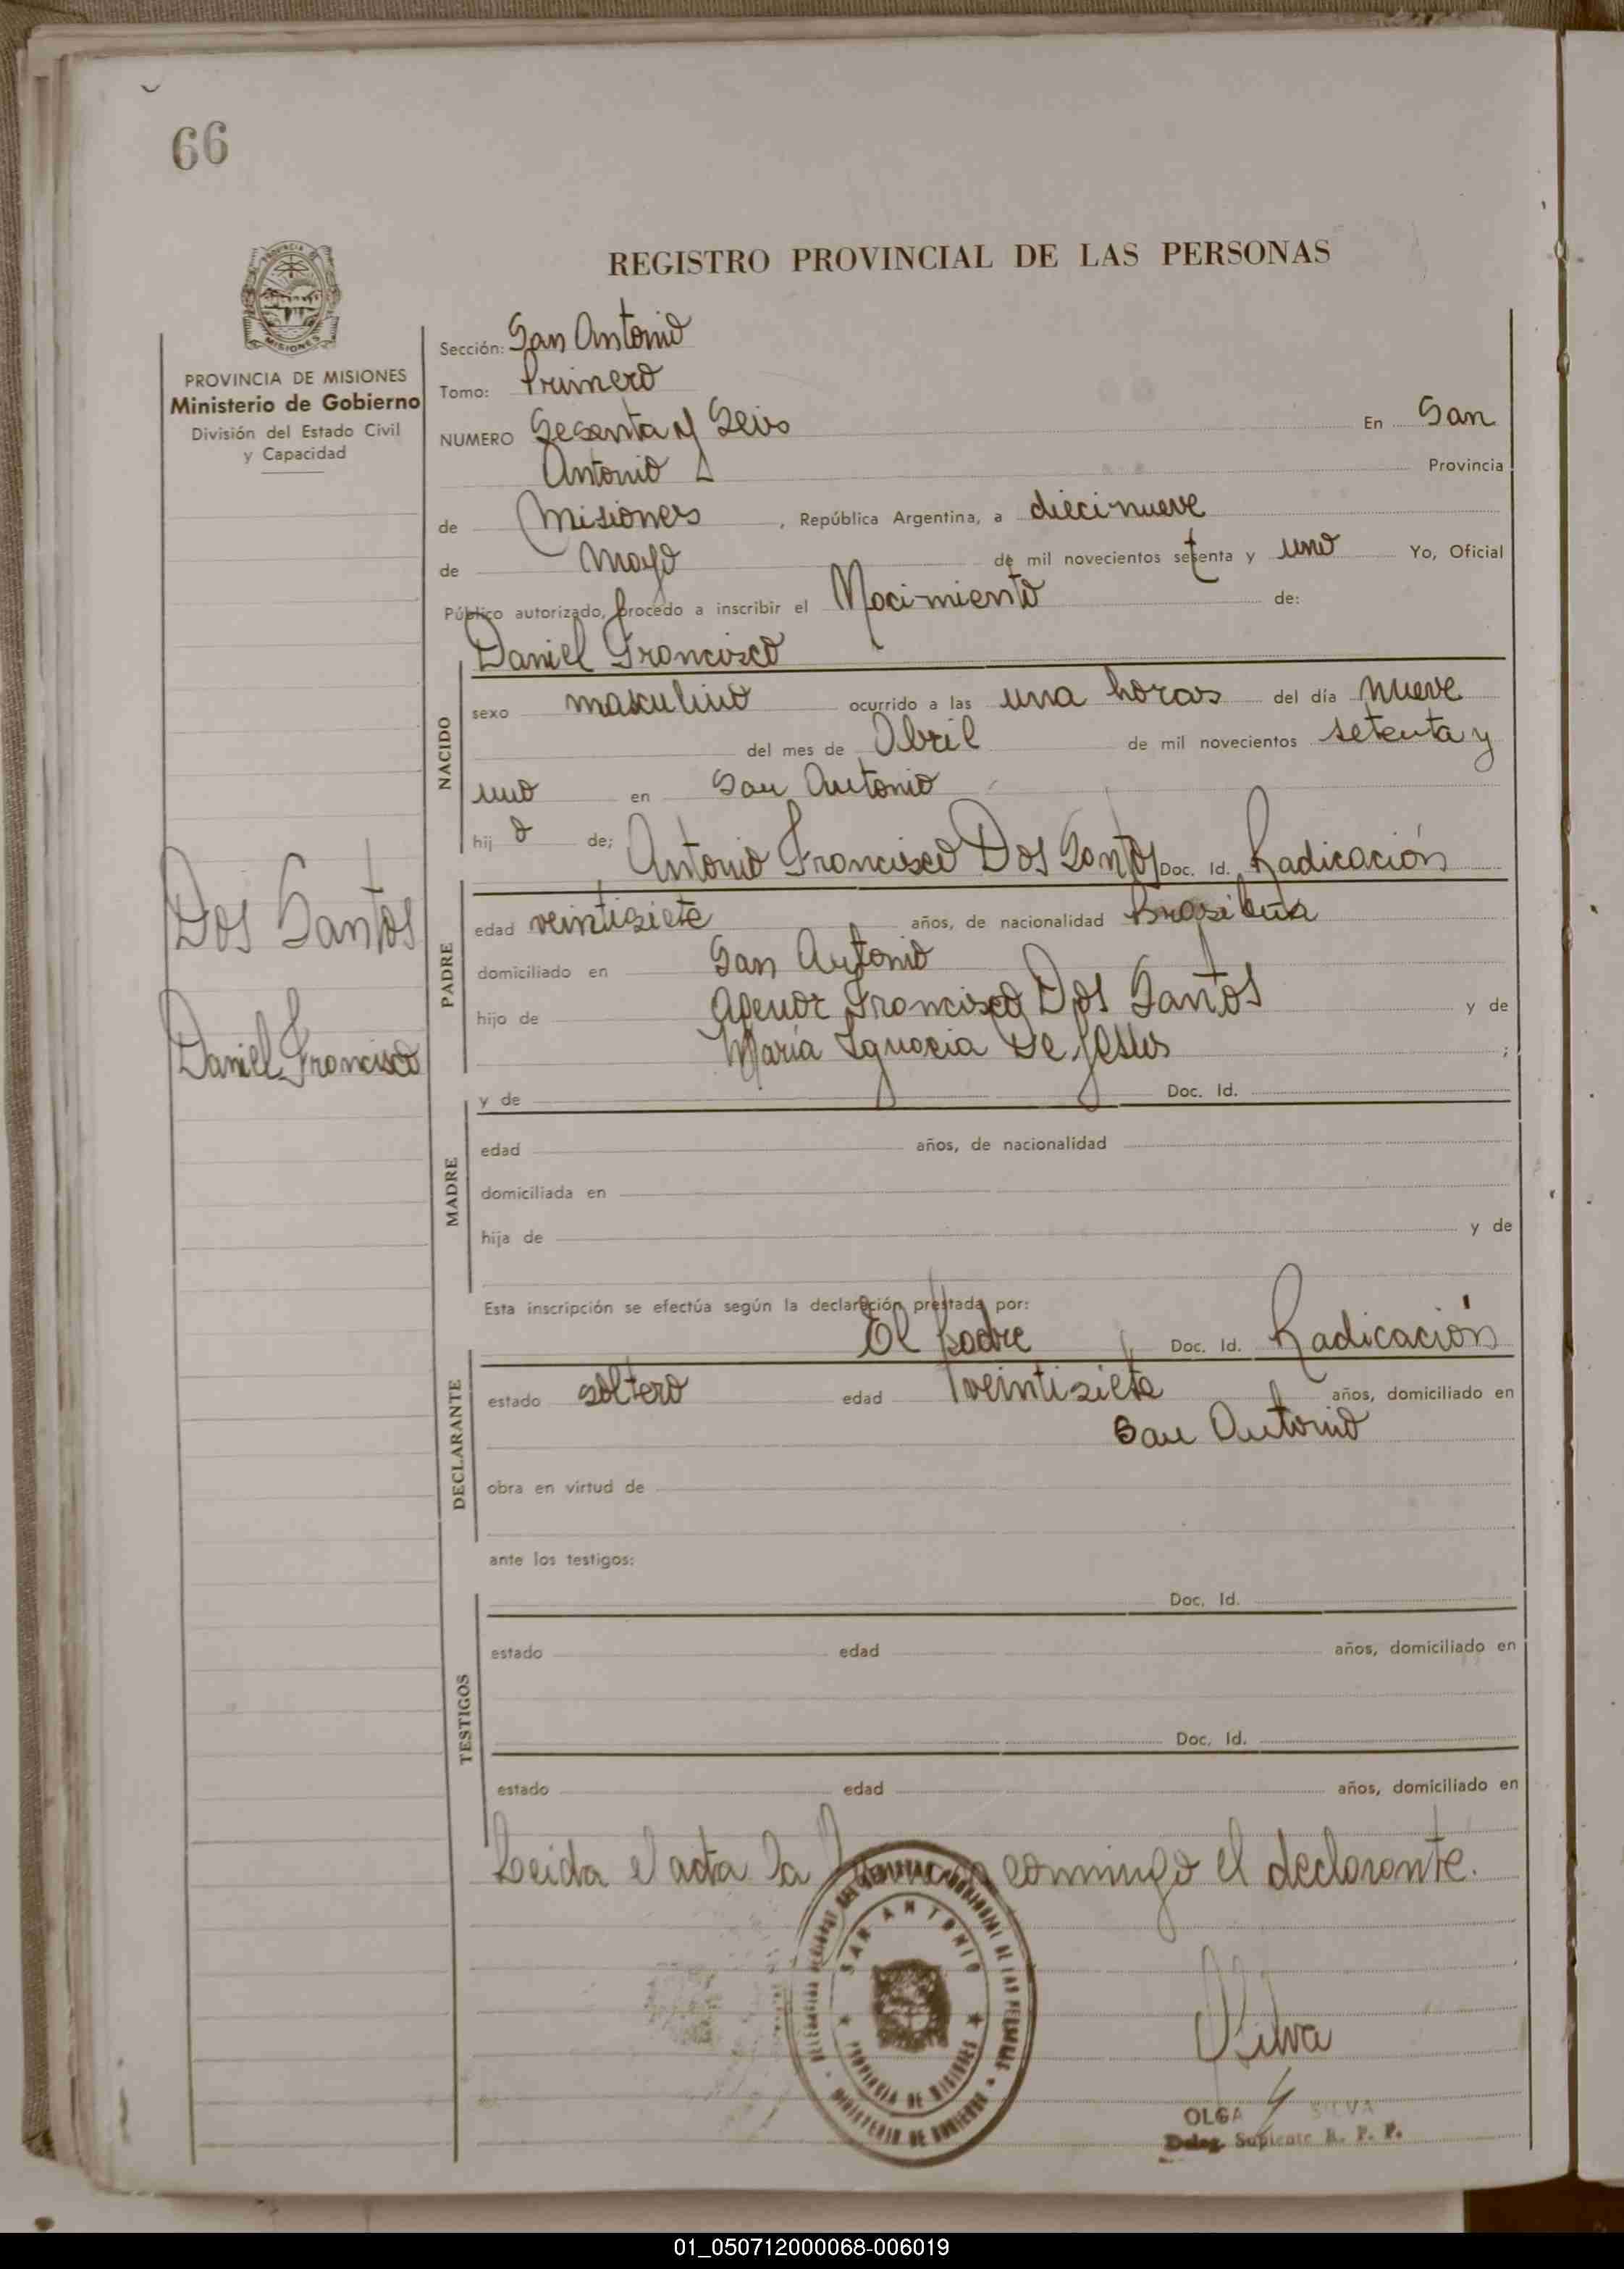 66
REGISTRO PROVINCIAL DE LAS PERSONAS
PROVINCIA DE MISIONES
Ministerio de Gobierno
División del Estado Civil
y Capacidad
Sección: San Antonio
Tomo: Primero
NUMERO Sesenta y Seis En San
Antonio Provincia
de Misiones, República Argentina, a diecinueve
de Mayo de mil novecientos setenta y uno Yo, Oficial
Público autorizado, procedo a inscribir el Nacimiento de:
Daniel Francisco
NACIDO
sexo masculino ocurrido a las una horas del día nueve
del mes de Abril de mil novecientos setenta y
uno en San Antonio
hijo de; Antonio Francisco Dos Santos Doc. Id. Radicación
Dos Santos
Daniel Francisco
PADRE
edad veintisiete años, de nacionalidad Brasileña
domiciliado en San Antonio
hijo de Agenor Francisco Dos Santos y de
María Ignacia De Jesus ;
y de Doc. Id.
MADRE
edad años, de nacionalidad
domiciliada en
hija de y de
Esta inscripción se efectúa según la declaración prestada por:
El padre Doc. Id. Radicación
DECLARANTE
estado soltero edad veintisiete años, domiciliado en
San Antonio
obra en virtud de
ante los testigos:
Doc. Id.
TESTIGOS
estado edad años, domiciliado en
Doc. Id.
estado edad años, domiciliado en
Leida el acta la conmigo el declarante.
SAN ANTONIO
PROVINCIA DE MISIONES
MINISTERIO DE GOBIERNO
Silva
OLGA SILVA
Deleg. Suplente R. P. P.
01_050712000068-006019